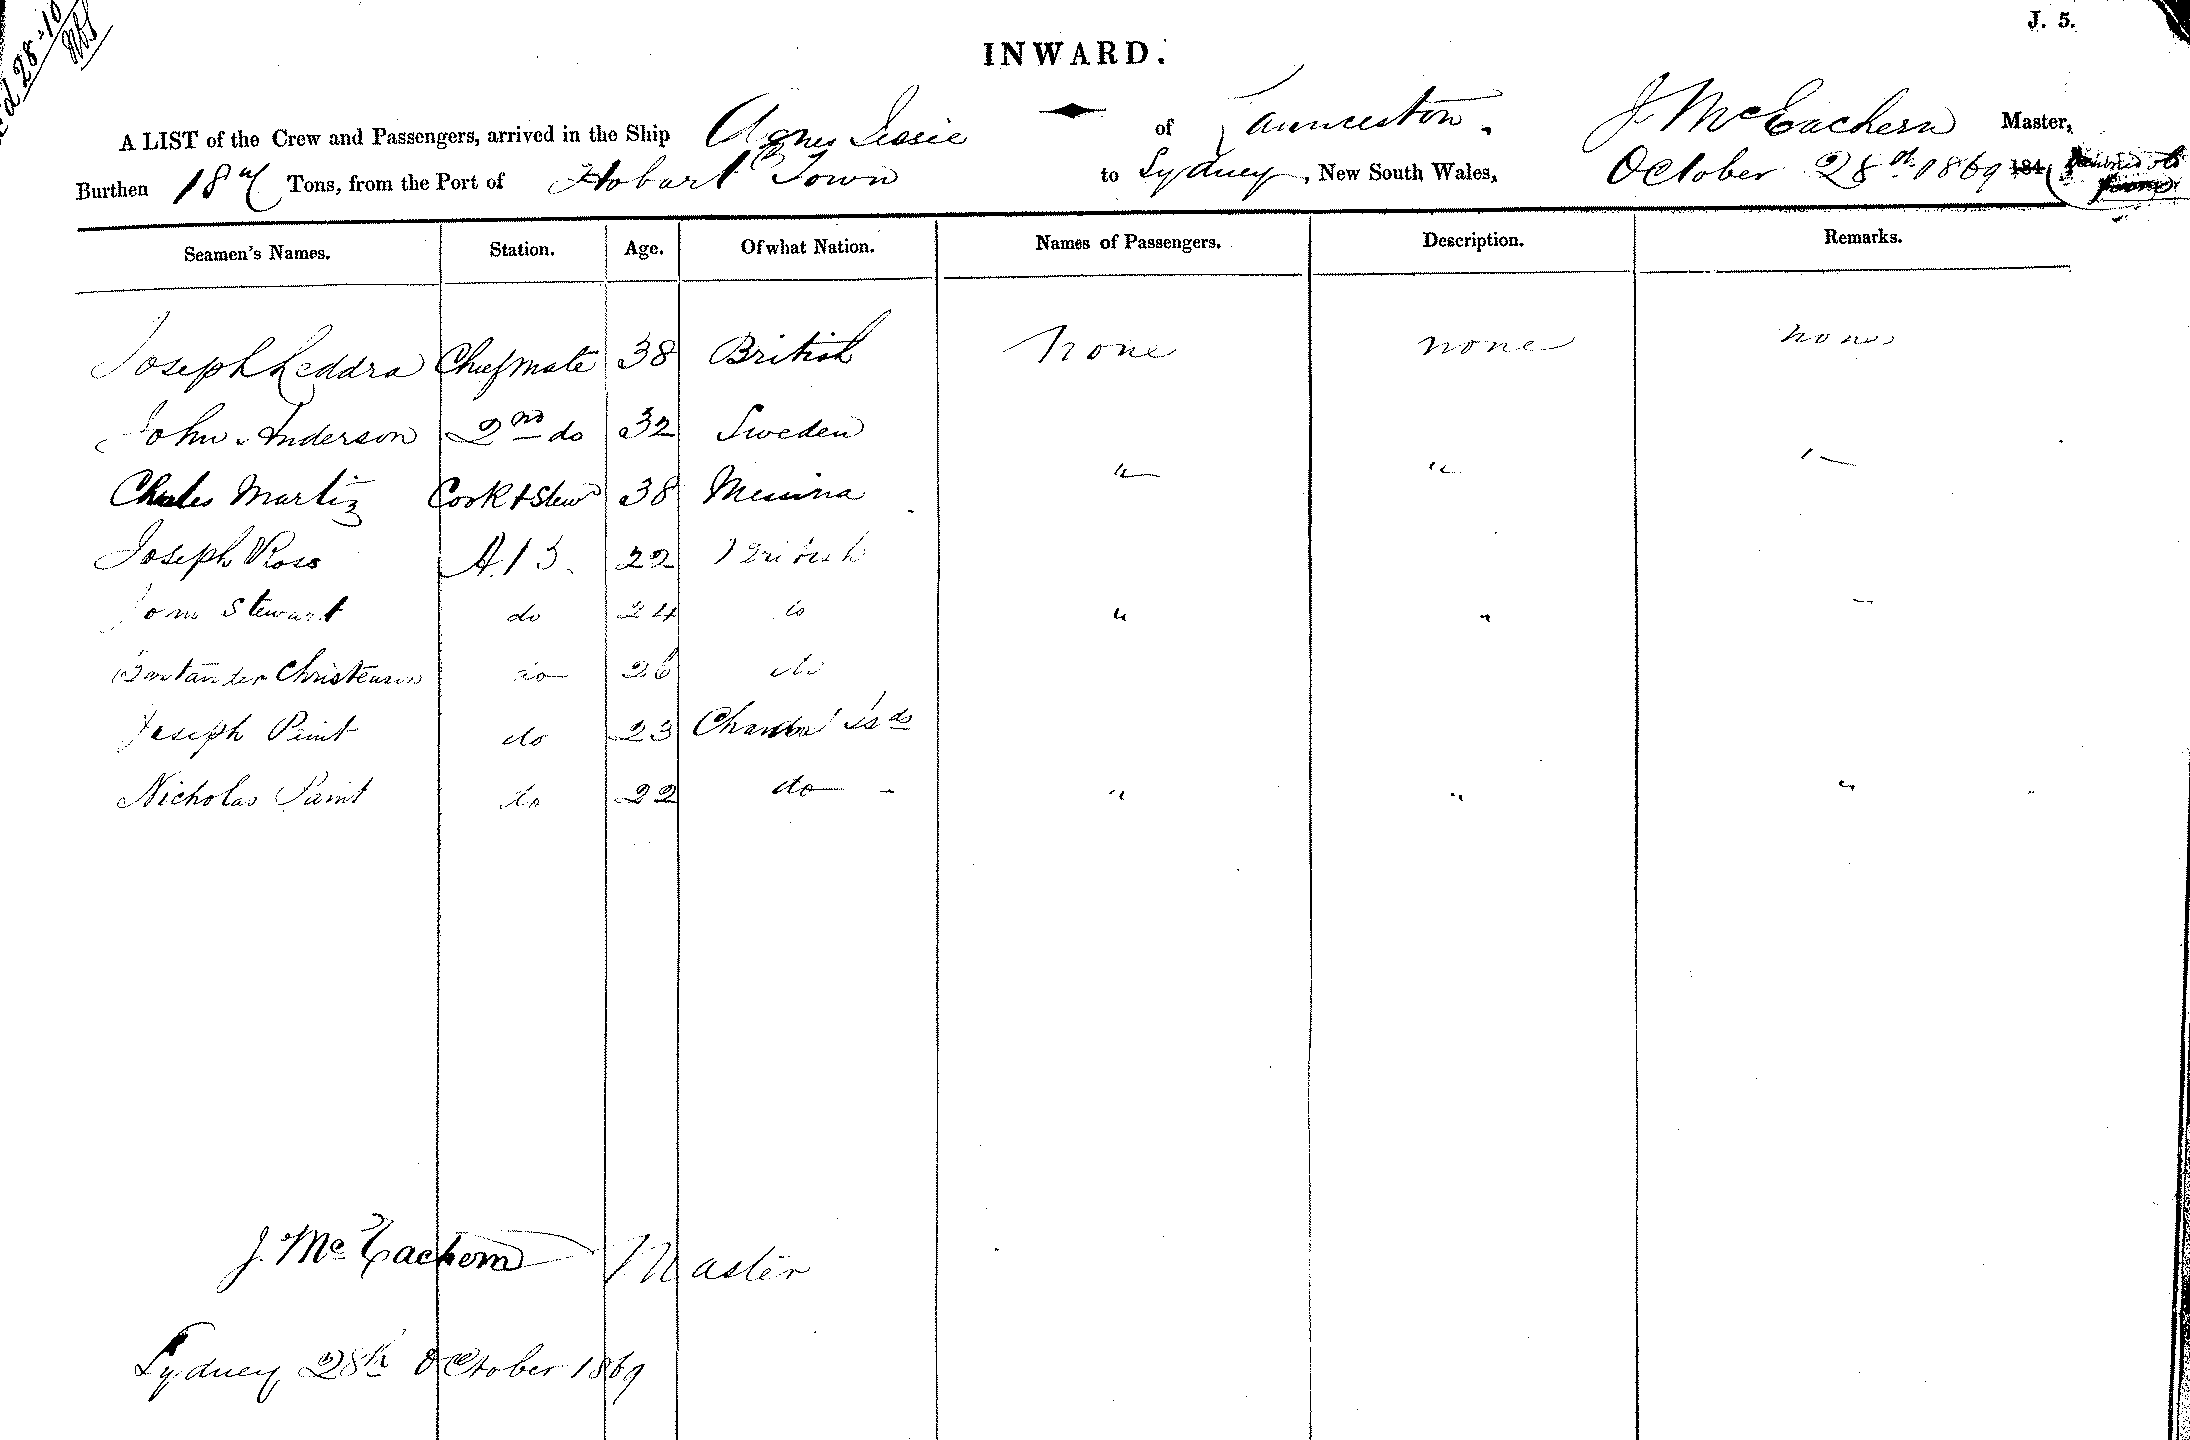 J. 5.
28-10
INWARD.
A LIST of the Crew and Passengers, arrived in the Ship Agnes Jessie of Launceston. J McEachern Master,
Burthen Tons, from the Port of Hobart Town to Sydney, New South Wales, October 28th 1869 184
Seamen's Names. Station. Age. Of what Nation. Names of Passengers. Description. Remarks.
Joseph Leddra Chief mate 38 British none none none
John Anderson 2nd do 32 Sweden
Charles Martiz Cook & Stewd 38 Messina " " "
Joseph Ross A.B. 22 British
Stewart do 24 do " "
Christensen do 26 do
Joseph do 23 Channel Isds
Nicholas do 22 do " " "
J. McEachern Master
Sydney 28th October 1869